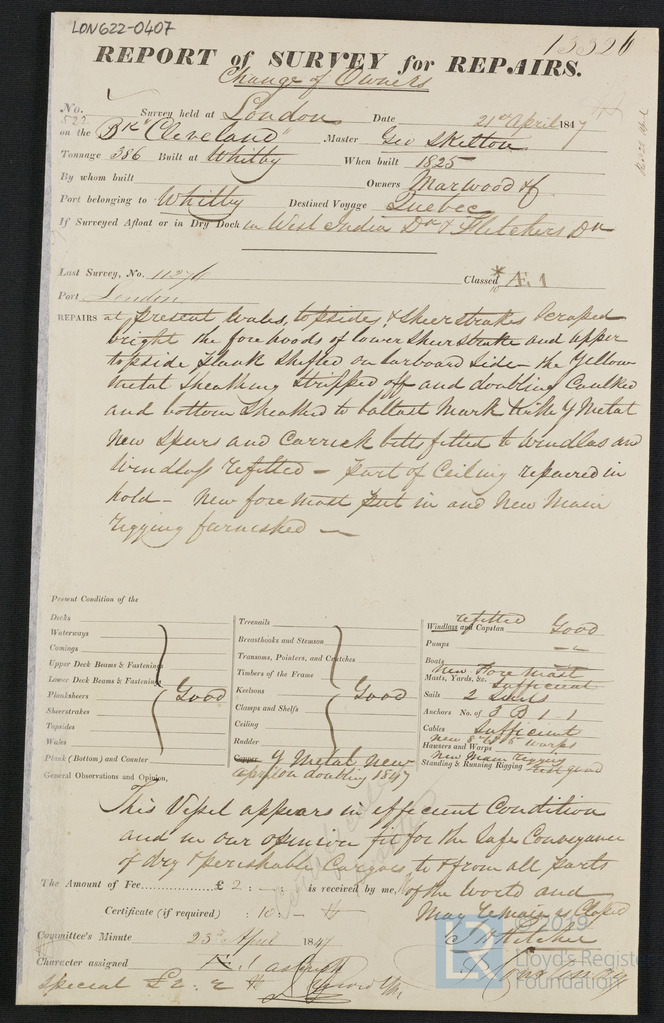 LON622-0407
13326
REPORT of SURVEY for REPAIRS.
Change of Owners
No. 522 Survey held at London Date 21st April 1847
on the Bk "Cleveland" Master Geo Skelton
Tonnage 386 Built at Whitby When built 1825
By whom built Owners Marwood &
Port belonging to Whitby Destined Voyage Quebec
If Surveyed Afloat or in Dry Dock in West India Dk & Fletchers Dk
Last Survey, No. 11376 Classed * Æ 1
Port London
REPAIRS at present Wales, topsides, & Sheerstrakes Scraped
bright the fore hoods of lower Sheerstrake and upper
topside plank Shifted on larboard Side - the Yellow
Metal Sheathing Stripped off and doubling Caulked
and bottom Sheathed to ballast Mark with Y Metal
New Spurs and Carrick bitts fitted to windlas and
Windlass refitted - part of Ceiling repaired in
hold - New fore mast put in and New Main
rigging furnished -
Present Condition of the
Decks
Waterways
Comings
Upper Deck Beams & Fastenings
Lower Deck Beams & Fastenings
Planksheers Good
Sheerstrakes
Topsides
Wales
Plank (Bottom) and Counter
Treenails
Breasthooks and Stemson
Transoms, Pointers, and Crutches
Timbers of the Frame
Keelsons Good
Clamps and Shelfs
Ceiling
Rudder
Copper Y Metal New
April on doubling 1847
refitted
Windlass and Capstan Good
Pumps
Boats
New Fore Mast
Masts, Yards, &c. Sufficient
Sails 2 Suits
Anchors No. of 3 B 1 - 1
Cables Sufficient
Hawsers and Warps New warps
New Main rigging
Standing & Running Rigging good
General Observations and Opinion,
This Vessel appears in efficient Condition
and in our opinion fit for the Safe Conveyance
of dry & perishable Cargoes to & from all parts
The Amount of Fee £ 2 : - : - is received by me, of the World and
Certificate (if required) : 10 : - May remain as Classed
Committee's Minute 23rd April 1847
Character assigned Æ 1
special
© 2019
Lloyd's Register
Foundation